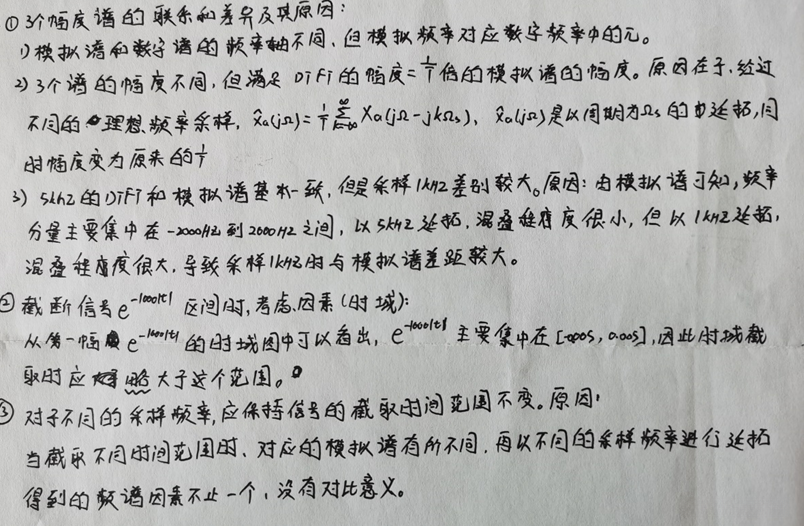 ① 3个幅度谱的联系和差异及其原因:
1) 模拟谱和数字谱的频率轴不同,但模拟频率对应数字频率中的π。
2) 3个谱的幅度不同,但满足DTFT的幅度=1/T倍的模拟谱的幅度。原因在于,经过
不同的理想频率采样, X̂a(jΩ)=1/T ∑_{k=-∞}^{∞} Xa(jΩ-jkΩs), X̂a(jΩ)是以周期为Ωs的由延拓,同
时幅度变为原来的1/T
3) 5kHz的DTFT和模拟谱基本一致,但是采样1kHz差别较大。原因:由模拟谱可知,频率
分量主要集中在-2000Hz到2000Hz之间,以5kHz延拓,混叠程度很小,但以1kHz延拓,
混叠程度很大,导致采样1kHz时与模拟谱差距较大。
② 截断信号e^{-1000|t|}区间时,考虑因素(时域):
从第一幅e^{-1000|t|}的时域图中可以看出,e^{-1000|t|}主要集中在[-0.005,0.005],因此时域截
取时应略大于这个范围。
③ 对于不同的采样频率,应保持信号的截取时间范围不变。原因:
当截取不同时间范围时、对应的模拟谱有所不同,再以不同的采样频率进行延拓
得到的频谱因素不止一个,没有对比意义。